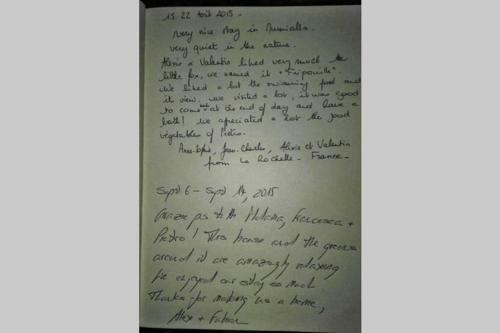 15. 22 Août 2015 -
Very nice stay in
very quiet in the nature.
Alexis & Valentin liked very much the
little fox, we named it "Fripouille"
we liked a lot the swimming pool and
its view. we visited a lot, it was good
to come at the end of day and have a
bath! We apreciated a lot the good
vegetables of Pietro.
Anne-Sophie, Jean-Charles, Alexis et Valentin
from La Rochelle - France -
Sept 6 - Sept 14, 2015
Grazie Francesca +
Pietro! This house and the
around it are amazingly relaxing
We enjoyed our stay so much
Thanks for making us a home,
Alex +